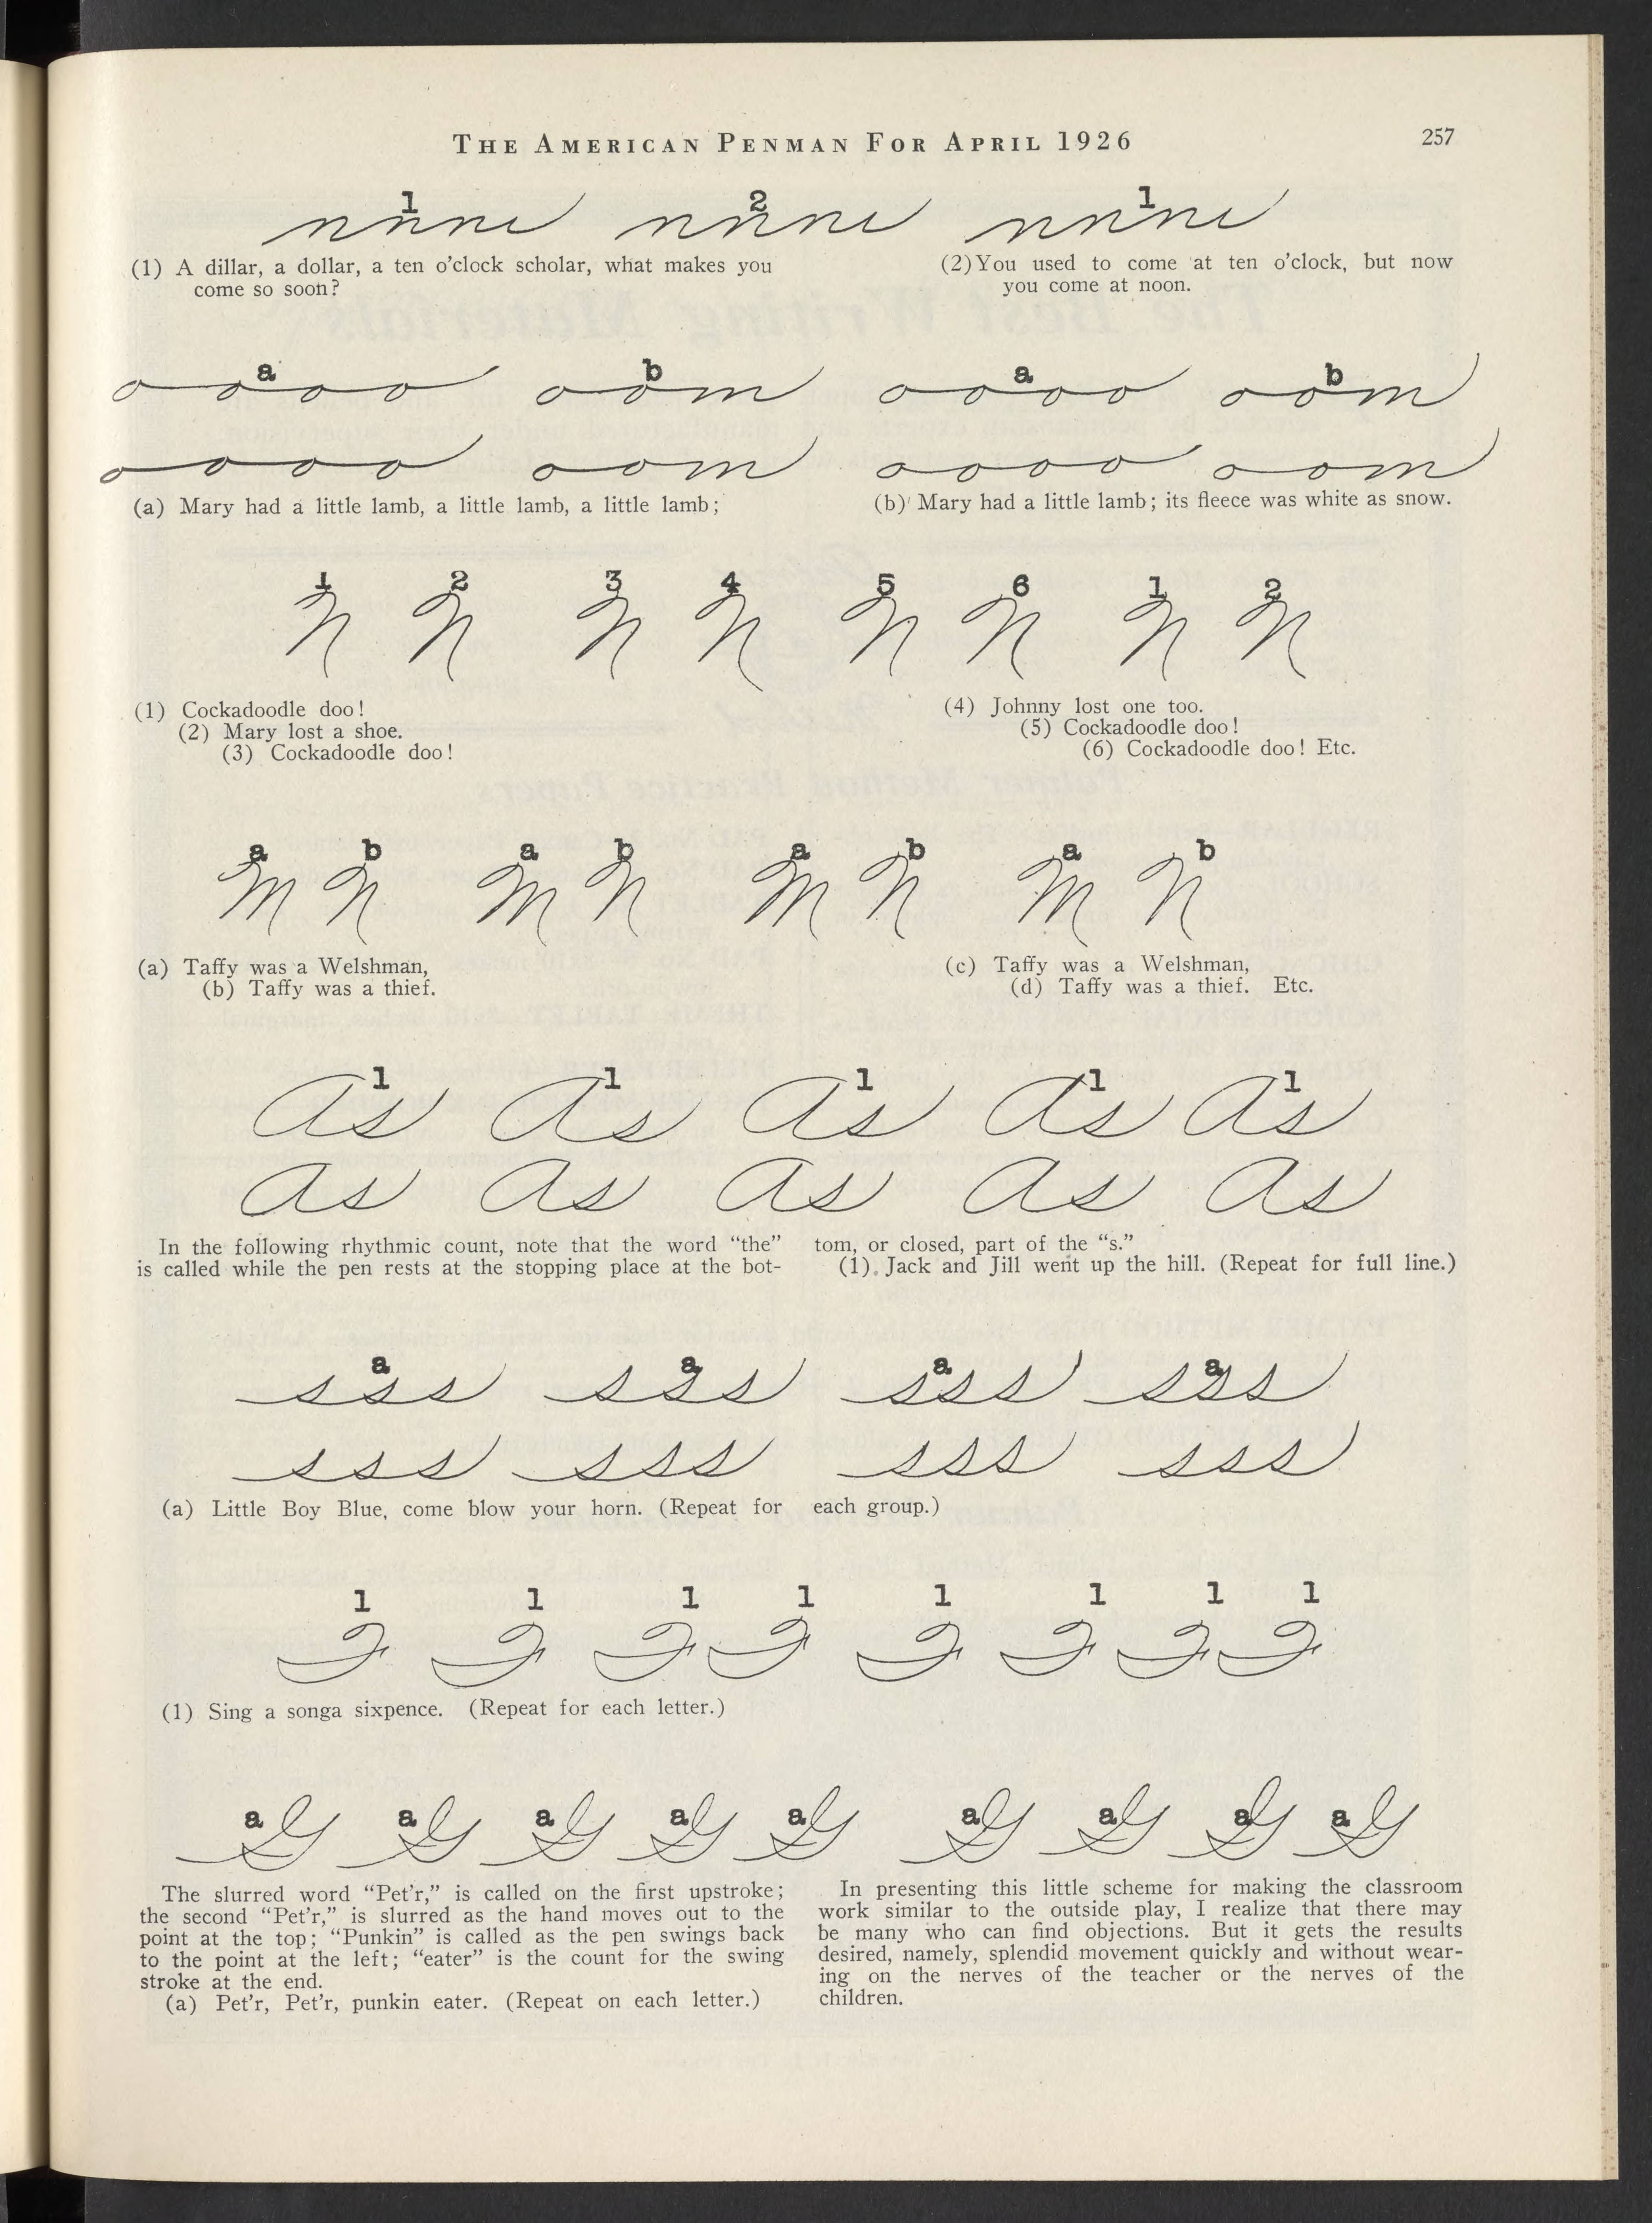 THE AMERICAN PENMAN FOR APRIL 1926
257
1 2 1
nnnn nnnn nnnn
(1) A dillar, a dollar, a ten o'clock scholar, what makes you
come so soon?
(2) You used to come at ten o'clock, but now
you come at noon.
a b a b
oooo oom oooo oom
oooo oom oooo oom
(a) Mary had a little lamb, a little lamb, a little lamb;
(b) Mary had a little lamb; its fleece was white as snow.
1 2 3 4 5 6 1 2
N N N N N N N N
(1) Cockadoodle doo!
(2) Mary lost a shoe.
(3) Cockadoodle doo!
(4) Johnny lost one too.
(5) Cockadoodle doo!
(6) Cockadoodle doo! Etc.
a b a b a b a b
M N M N M N M N
(a) Taffy was a Welshman,
(b) Taffy was a thief.
(c) Taffy was a Welshman,
(d) Taffy was a thief. Etc.
1 1 1 1 1
As As As As As
As As As As As
In the following rhythmic count, note that the word "the"
is called while the pen rests at the stopping place at the bot-
tom, or closed, part of the "s."
(1) Jack and Jill went up the hill. (Repeat for full line.)
a a a a
sss sss sss sss
sss sss sss sss
(a) Little Boy Blue, come blow your horn. (Repeat for each group.)
1 1 1 1 1 1 1 1
(1) Sing a songa sixpence. (Repeat for each letter.)
a a a a a a a a a
G G G G G G G G G
The slurred word "Pet'r," is called on the first upstroke;
the second "Pet'r," is slurred as the hand moves out to the
point at the top; "Punkin" is called as the pen swings back
to the point at the left; "eater" is the count for the swing
stroke at the end.
(a) Pet'r, Pet'r, punkin eater. (Repeat on each letter.)
In presenting this little scheme for making the classroom
work similar to the outside play, I realize that there may
be many who can find objections. But it gets the results
desired, namely, splendid movement quickly and without wear-
ing on the nerves of the teacher or the nerves of the
children.